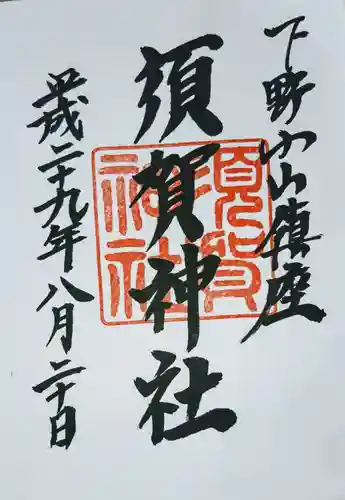 下野小山鎮座
須賀神社
平成二十九年八月二十日
須賀
神社